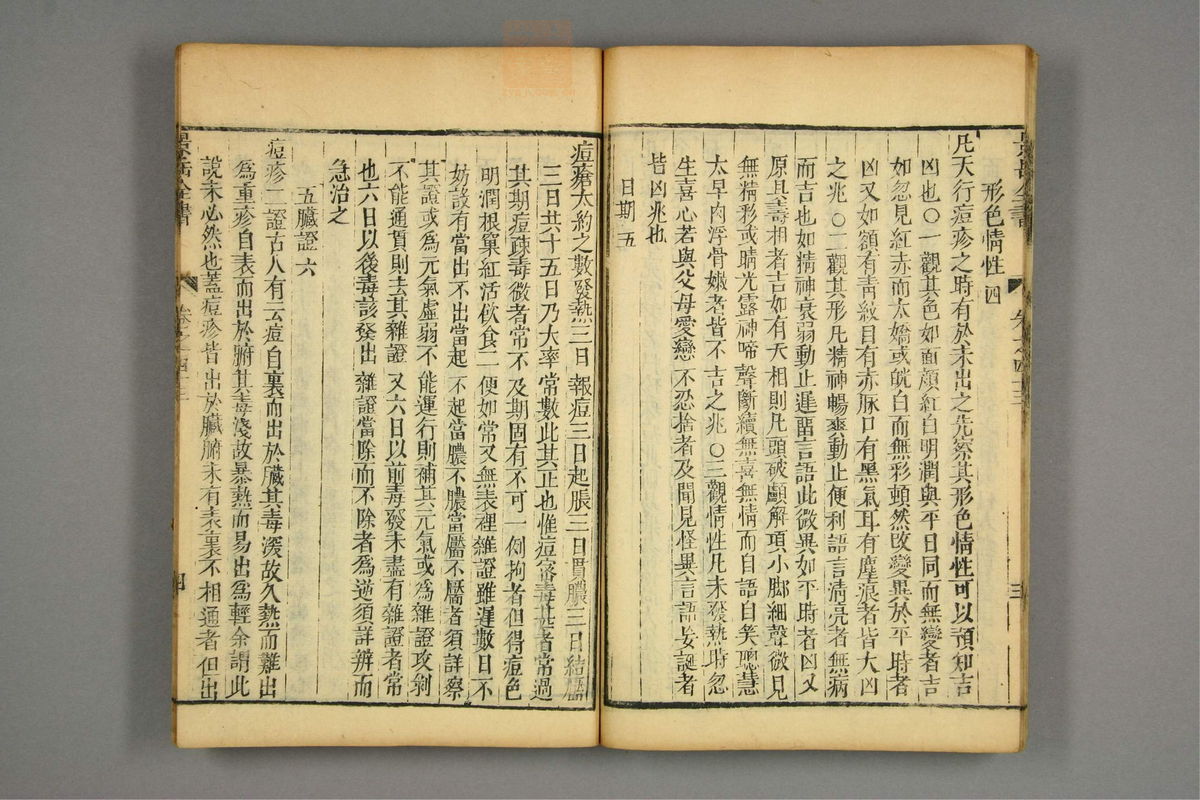 形色情性四
凡天行痘疹之時有於未出之先察其形色情性可以預知吉
凶也○一觀其色如面顏紅白明潤與平日同而無變者吉
如忽見紅赤而太嬌或皖白而無彩頓然改變異於平時者
凶又如額有靑紋目有赤脉口有黑氣耳有塵痕者皆大凶
之兆○二觀其形凡精神暢爽動止便利語言淸亮者無病
而吉也如精神衰弱動止遲留言語此微異如平時者凶又
原具壽相者吉如有夭相則凡頭破顱解項小脚細聲微見
無精彩或睛光露神啼聲斷續無喜無情而自語自矣聰慧
太早肉浮骨嫩者皆不吉之兆○三觀情性凡未發熱時忽
生喜心若與父母愛戀不忍捨者及聞見怪異言語妄誕者
皆凶兆也
日期五
景岳全書
卷之四十三
三
痘瘡大約之數發熱三日報痘三日起脹三日貫膿三日結靨
三日共十五日乃大率常數此其正也惟痘密毒甚者常過
其期痘疎毒微者常不及期固有不可一例拘者但得痘色
明潤根窠紅活飲食二便如常又無表裡雜證雖遲數日不
妨設有當出不出當起不起當膿不膿當靨不靨者須詳察
其證或爲元氣虛弱不能運行則補其元氣或爲雜證攻剝
不能通貫則去其雜證又六日以前毒發未盡有雜證者常
也六日以後毒該發出雜證當除而不除者爲逆須詳辨而
急治之
五臟證六
痘疹二證古人有云痘自裏而出於臟其毒深故久熱而難出
爲重疹自表而出於腑其毒淺故暴熱而易出爲輕余謂此
說未必然也蓋痘疹皆出於臟腑未有表裏不相通者但出
景岳全書
卷之四十三
四